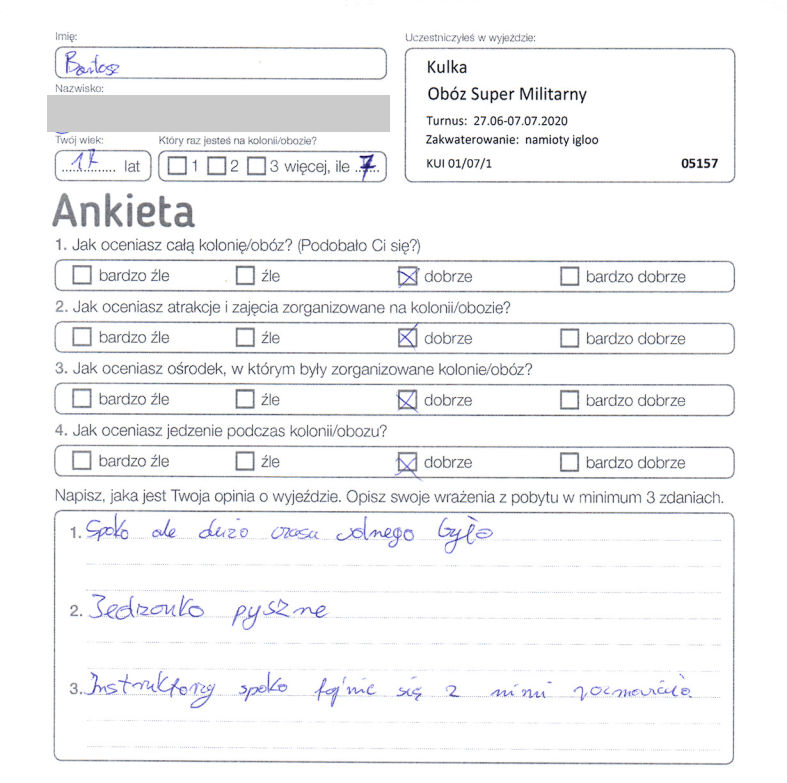 Imię:
Bartosz
Nazwisko:
Twój wiek:
17 lat
Który raz jesteś na kolonii/obozie?
1 2 3 więcej, ile 7
Uczestniczyłeś w wyjeździe:
Kulka
Obóz Super Militarny
Turnus: 27.06-07.07.2020
Zakwaterowanie: namioty igloo
KUI 01/07/1 05157
Ankieta
1. Jak oceniasz całą kolonię/obóz? (Podobało Ci się?)
bardzo źle źle dobrze bardzo dobrze
2. Jak oceniasz atrakcje i zajęcia zorganizowane na kolonii/obozie?
bardzo źle źle dobrze bardzo dobrze
3. Jak oceniasz ośrodek, w którym były zorganizowane kolonie/obóz?
bardzo źle źle dobrze bardzo dobrze
4. Jak oceniasz jedzenie podczas kolonii/obozu?
bardzo źle źle dobrze bardzo dobrze
Napisz, jaka jest Twoja opinia o wyjeździe. Opisz swoje wrażenia z pobytu w minimum 3 zdaniach.
1. Spoko ale dużo czasu wolnego było
2. Jedzonko pyszne
3. Instruktorzy spoko fajnie się z nimi rozmawiało